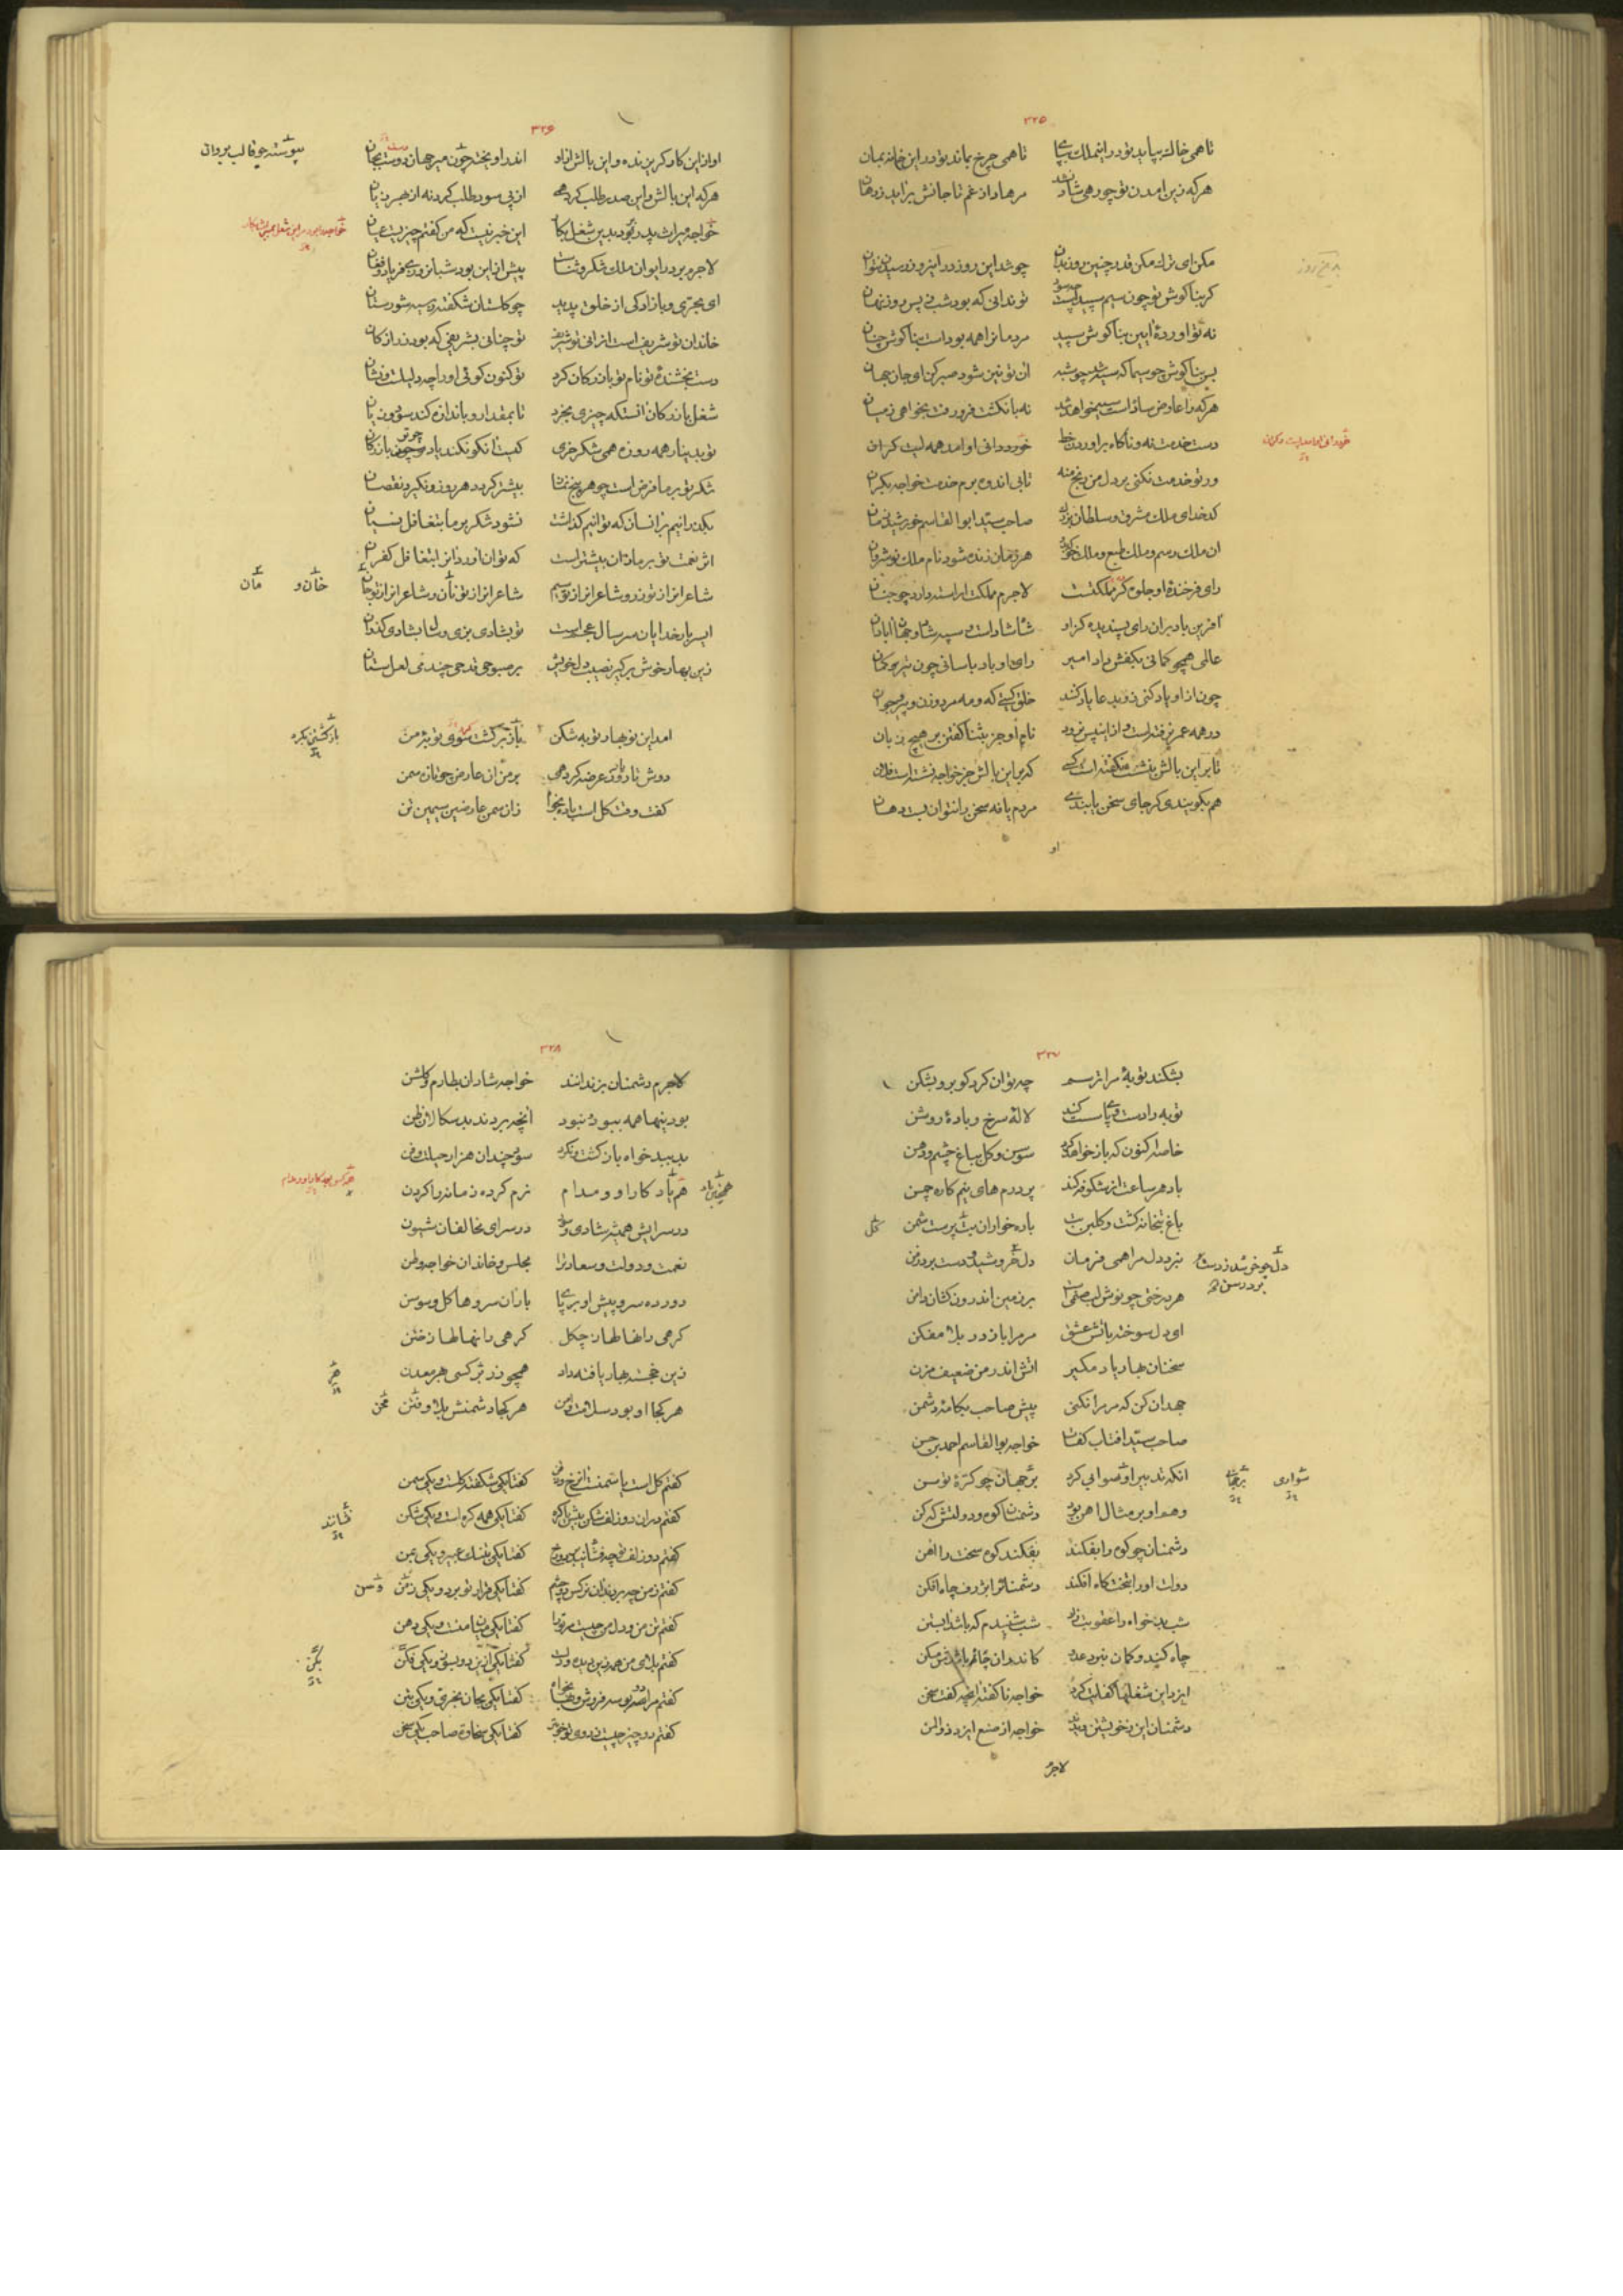 ۳۲۵
تا همی خاک بپاید تو در این ملک بپای تا همی چرخ بماند تو در این خانه بمان
هرکه زین آمدن تو چو رهی شاد نشد مرهاد از غم تا جانش برآید ز دهان
مکن ای ترک مکن قدر چنین روز بدان چو شد این روز درین روز رسیدن نتوان
گر بناگوش تو چون سیم سپیدست تو ندانی که بود شب ز پس روز نهان
نه تو آوردهٔ آیین بناگوش سپید مردمانرا همه بودست بناگوش چنان
بس بناگوش چو سیما که سیه شد چو شبه آن تو نین شود صبر کن ای جان جهان
هرکه را عارض سادست سیه خواهد شد نه بانگشت فرو رفت بخواهی زمیان
دست خدمت نه و ناگاه برآوردن خط
ور تو خدمت نکنی بر دل من رنج منه تا بی اندوه برم خدمت خواجه بکران
کدخدای ملک مشرق و سلطان بزرگ صاحب سید ابوالقاسم خورشید زمان
آن ملک رسم و ملک طبع و ملک خو که ازو هر زمان زنده شود نام ملک نوشروان
رای فرخندهٔ او جلوه گر مملکتست لاجرم مملکت آراسته دارد چو جنان
آفرین باد بران رای پسندیده کزو شاه شادست و سپه شاد و جهان آبادان
عالمی همچو کمانی بکفش داد امیر رای او باد باسانی چون تیر و کمان
چون ازو یاد کنی زو بدعا یاد کنند خلق گیتی که و مه مرد و زن و پیر و جوان
در همه عمر نرفتست و ازین پس نرود نام او جز بثنا گفتن بر هیچ زبان
تا برین بالش بنشست نگفتست کسی که برین بالش جز خواجه نشستست فلان
هم بگویندی گر جای سخن یابندی مردم یافه سخن را نتوان بست دهان
او
۳۲۶
او ازین کار گریزنده و این بالش ازو اندر آویخته چون مهر جهان دوست بجان پیوسته چو قالب بروان
هرکه این بالش و این صدر طلب کرد همی از پی سود طلب کرد نه از بهر زیان
خواجه میراث پدر یافت بدین شغل بکار این خبر نیست که من گفتم چیزیست عیان
لاجرم بر در ایوان ملک شکر و ثناست پیش ازین بود شبانروزی فریاد و فغان
ای بحری و بازادگی از خلق پدید چو گلستان شکفته ز سیه شورستان
خاندان تو شریفست ازانی تو شریف تو چنانی بشریفی که بود زر از کان
دست بخشندهٔ تو نام تو بازرگان کرد تو کنون گوئی او را چه دلیلست و نشان
شغل بازرگان آنستکه چیزی بخرد تا بمقدار و باندازه کند سود و زیان
تو بدینار همه روزه همی شکر خری کیست آنکو نکند یاد چو تو بازرگان
شکر تو بر ما فرضست چو هر پنج نماز بیشتر گردد هر روز و نگیرد نقصان
بگذرانیم بر انسان که توانیم گذاشت نشود شکر بر ما بتغافل نسیان
اثر نعمت تو بر ما زان بیشترست که توان آورد آنرا بتغافل کفران
شاعرانرا ز تو زر و شاعرانرا ز تو سیم شاعرانرا ز تو نان و شاعرانرا ز تو جان خان و مان
ای سر بارخدایان سر سال عجمست تو بشادی بزی و سال بشادی گذران
زین بهار خوش برگیر نصیب دل خویش بر صبوحی قدحی چند می لعل ستان
آمد این نوبهار توبه شکن بازگشتن بکرد
دوش تا روز عرضه کرد همی بر من آن عارض چو تازه سمن
گفت وقت گل است باده بخواه زان سمن عارضین سیمین تن
۳۲۷
بشکند توبهٔ مرا ترسم چه توان کرد گو برو بشکن
توبه را دست و پای سست کند لالهٔ سرخ و بادهٔ روشن
خاصه اکنون که باز خواهد کرد سوسن و گل بباغ چشم و دهن
باد هر ساعت از شکوفه کند پر درمهای نیم کاره چمن
باغ بتخانه گشت و گلبن بت باده خواران بت پرست شمن گل
نبرد دل مرا همی فرمان دل چو خر شد ز دست
هر درختی چو نوش لب صنمی است بر زمین اندرون کشان دامن
ای دل سوخته بآتش عشق مر مرا باز در بلا مفکن
سخنان بهار یاد مگیر آتش اندر من ضعیف مزن
جهد آن کن که مر مرا نکنی پیش صاحب بکامهٔ دشمن
صاحب سید آفتاب کفات خواجه بوالقاسم احمد بن حسن
آنکه تدبیر او سواری کرد بر جهان چو کرهٔ توسن
وهم او بر مثال آهن بود دشمنان کوه و دولتش که کن
دشمنان چو کوه را بفکند بفکند کوه سخت را آهن
دولت او را بتخت گاه افکند دشمنان را بژرف چاه افکن
شب بدخواه را عقوبت زاد شب شنیدم که باشد آبستن
چاه کندند و گمان نبرد عدو کاندران چاه باشدش مسکن
ایزد این شغلها کفایت کرد خواجه ناگفته آنچه گفت سخن
دشمنان این ز خویشتن دیدند خواجه از صنع ایزد ذوالمن
لاجرم
۳۲۸
لاجرم دشمنان بزندانند خواجه شادان بطارم و گلشن
بود بینها همه ببود و نبود آنچه بردند بدسگالان ظن
بد ببدخواه بازگشت و نکرد سود چندان هزار حیلت و فن
همچنین باد کار او و مدام نرم کرده زمانه را گردن
در سرایش همیشه شادی و سور در سرای مخالفان شیون
نعمت و دولت و سعادت را مجلس و خاندان خواجه وطن
دو رده سرو پیش او بر پای باران سروها گل و سوسن
گرهی را نهالها ز چگل گرهی را نهالها ز ختن
زین خجسته بهار یافته داد همچو زرتشتی از بهمن
هر کجا او بود سلامت و امن هر کجا دشمنش بلا و فتن محن
گفتم گلست یا سمنست آن رخ و ذقن گفتا یکی شکفته گلست و یکی سمن
گفتم در آن دو زلف شکن بیش یا گره گفتا یکی همه گره است و یکی شکن
گفتم دو زلف تو چه فشانند بر دو رخ گفتا یکی عبیر و یکی
گفتم ز من چه بردند آن نرگس دو چشم گفتا یکی قرار تو برد و یکی ز من وسن
گفتم تن من و دل من چیست مر ترا گفتا یکی میان منست و یکی دهن
گفتم بلای من همه زین دیده و دلست گفتا یکی ازین دو بسوز و یکی بکن
گفتم مرا دو بوسه فروش و بها بخواه گفتا یکی بجان بخری و یکی بتن
گفتم دو چیز چیست ز روی تو خوبتر گفتا یکی سخاوت صاحب یکی سخن